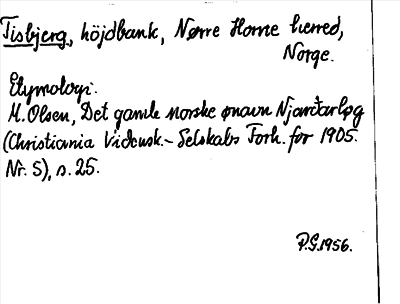 Tisbjerg, höjdbank, Nørre Horne herred,
Norge.
Etymologi.
M. Olsen, Det gamle norske ønavn Njarðarløg
(Christiania Vidensk.-Selskabs Forh. for 1905.
Nr. 5), s. 25.
P.G. 1956.